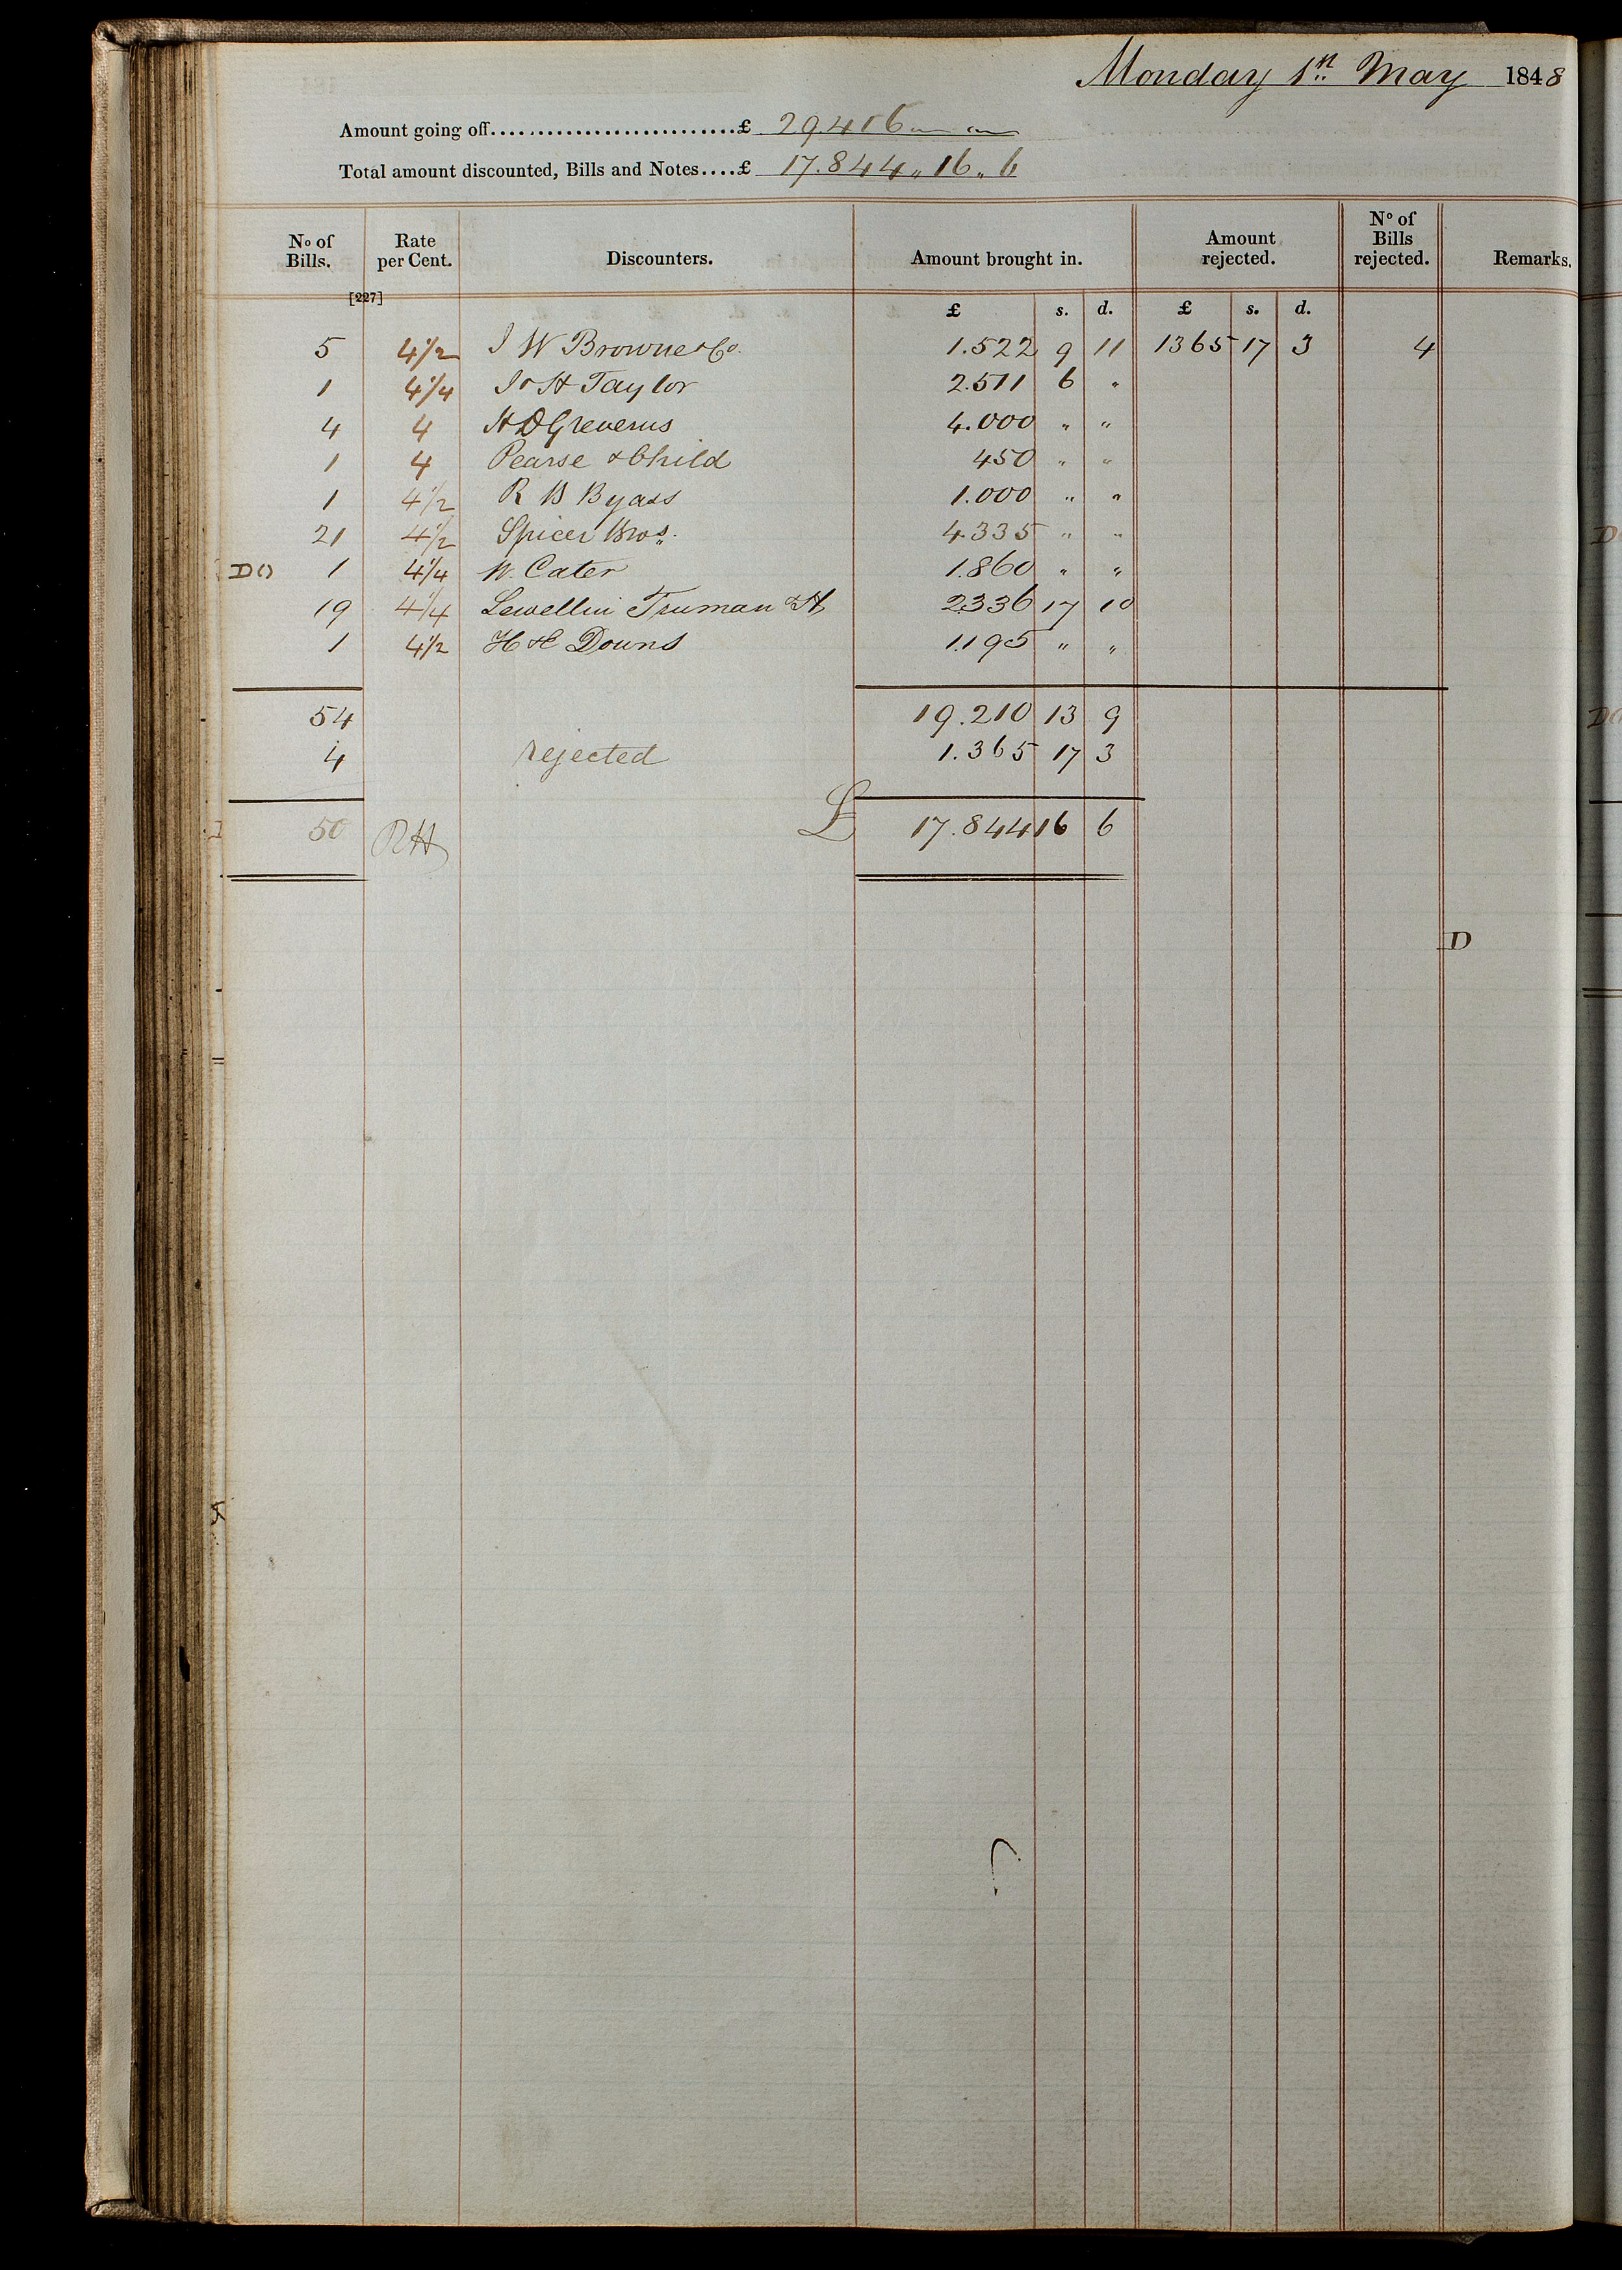 Monday 1st May 1848
Amount going off..........................£ 29.416 " "
Total amount discounted, Bills and Notes....£ 17.844 " 16 " 6
No of Bills. Rate per Cent. Discounters. Amount brought in. Amount rejected. No of Bills rejected. Remarks.
[227]
£ s. d. £ s. d.
5 4 1/2 J W Browne & Co. 1.522 9 11 1365 17 3 4
1 4 1/4 J & H Taylor 2.511 6 "
4 4 H D Greverus 4.000 " "
1 4 Pearse & Child 450 " "
1 4 1/2 R B Byass 1.000 " "
21 4 1/2 Spicer Bros. 4.335 " "
DO 1 4 1/4 W. Cater 1.860 " "
19 4 1/4 Lewellin Truman & H 2336 17 10
1 4 1/2 H & C Downs 1.195 " "
54 19.210 13 9
4 rejected 1.365 17 3
50 RH £ 17.844 16 6
D